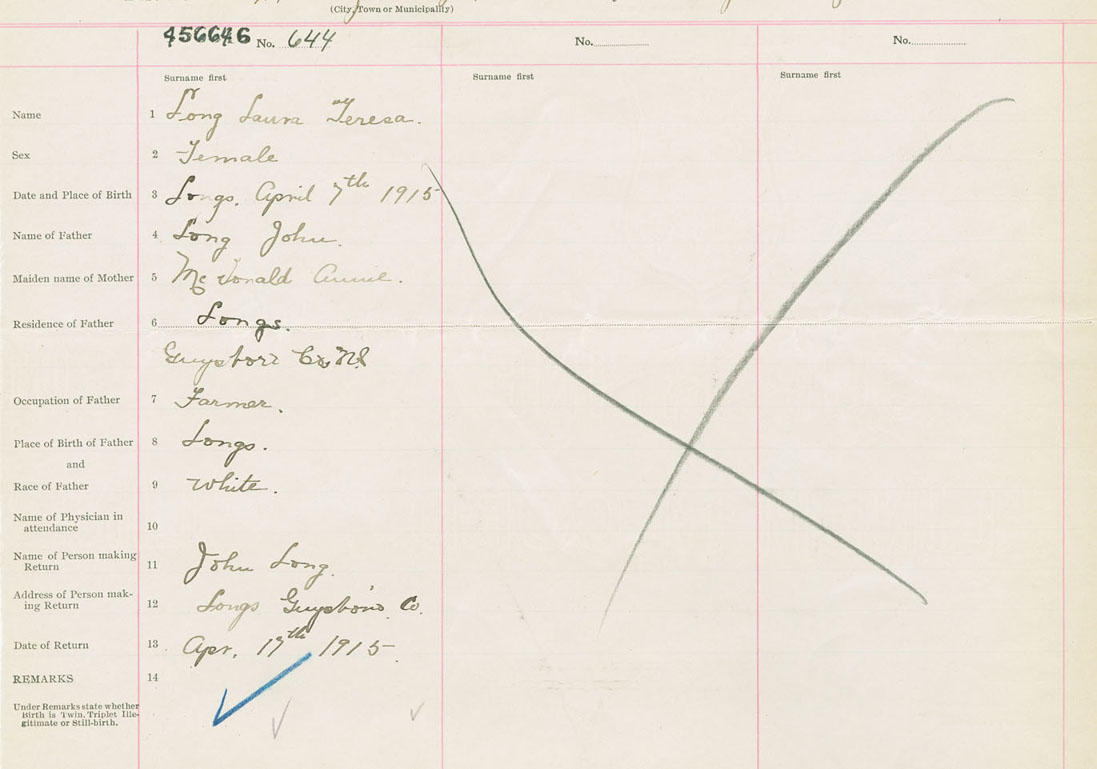 (City, Town or Municipality)
No. 644 No. No.
Surname first Surname first Surname first
Name 1 Long Laura Teresa.
Sex 2 Female
Date and Place of Birth 3 Longs. April 7th 1915
Name of Father 4 Long John.
Maiden name of Mother 5 McDonald Annie.
Residence of Father 6 Longs.
Guysboro Co, NS
Occupation of Father 7 Farmer.
Place of Birth of Father 8 Longs.
and
Race of Father 9 White.
Name of Physician in
attendance 10
Name of Person making
Return 11 John Long
Address of Person mak-
ing Return 12 Longs Guysboro Co.
Date of Return 13 Apr. 17th 1915
REMARKS 14
Under Remarks state whether
Birth is Twin, Triplet Ille-
gitimate or Still-birth.